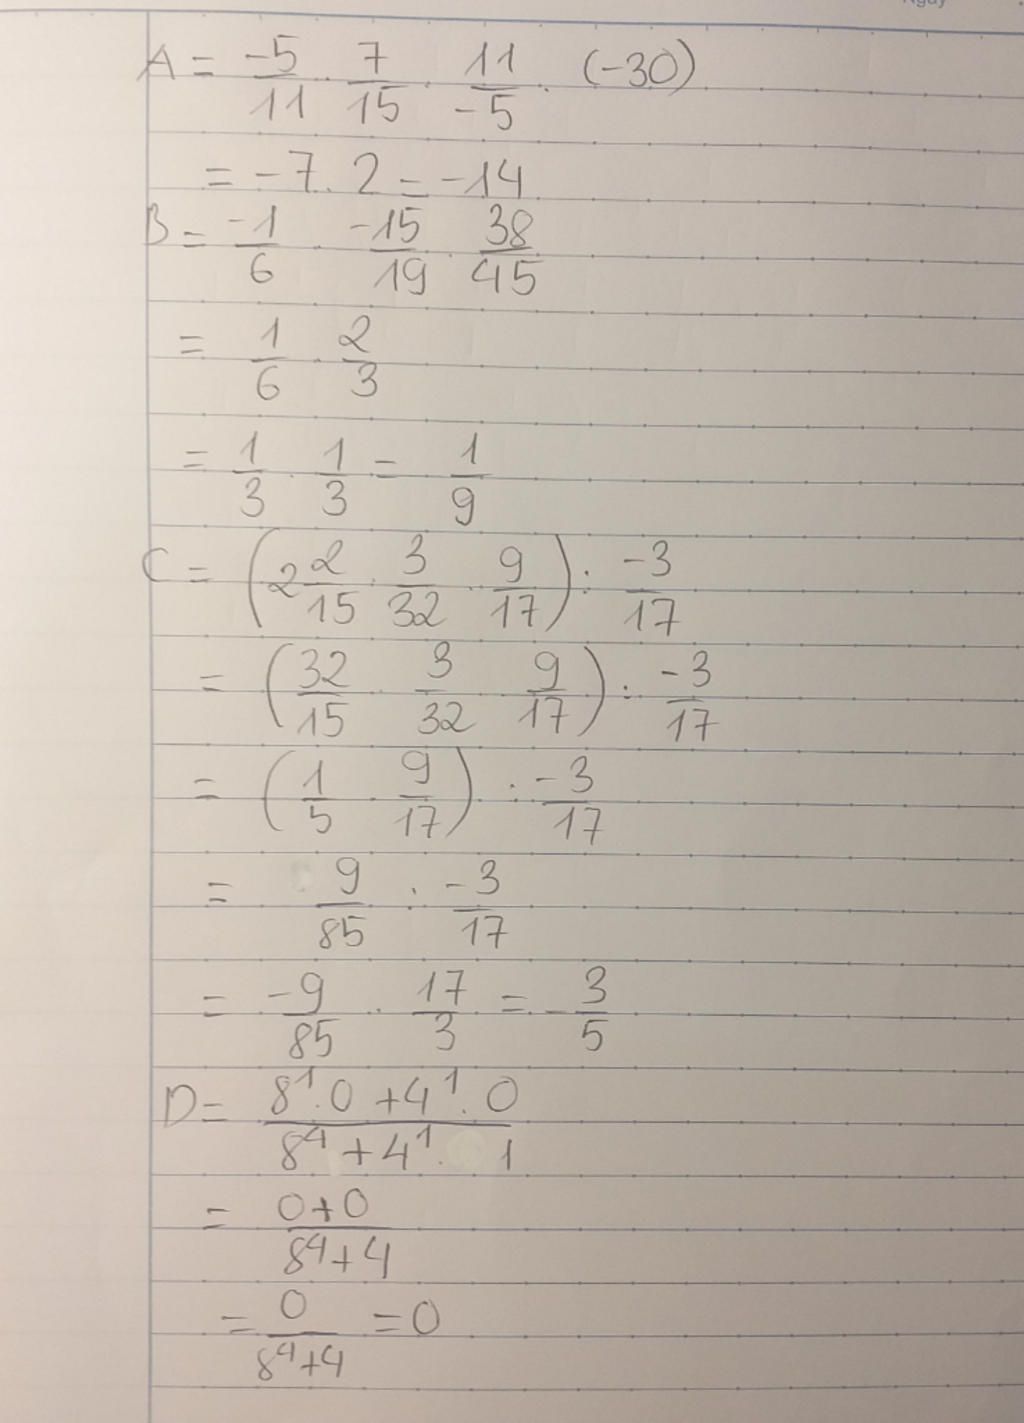 Ngày
A = -5/11 . 7/15 . 11/-5 . (-30)
= -7 . 2 = -14
B = -1/6 . -15/19 . 38/45
= 1/6 . 2/3
= 1/3 . 1/3 = 1/9
C = (2 2/15 . 3/32 . 9/17) : -3/17
= (32/15 . 3/32 . 9/17) : -3/17
= (1/5 . 9/17) : -3/17
= 9/85 : -3/17
= -9/85 . 17/3 = -3/5
D = (8¹ . 0 + 4¹ . 0)/(8⁴ + 4¹ . 1)
= (0 + 0)/(8⁴ + 4)
= 0/(8⁴ + 4) = 0